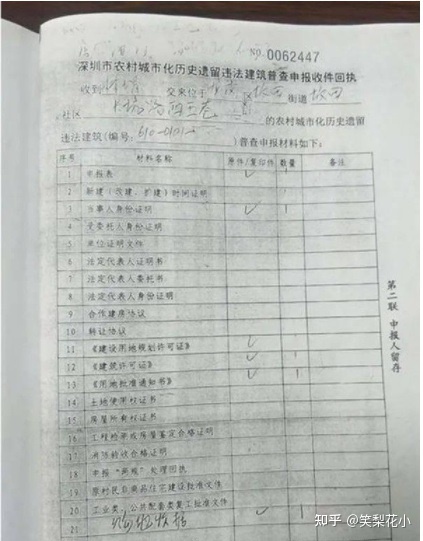 NO. 0062447
深圳市农村城市化历史遗留违法建筑普查申报收件回执
收到 交来位于 区 坂田 街道 坂田
社区 的农村城市化历史遗留
违法建筑(编号: )普查申报材料如下:
序号 材料名称 原件/复印件 数量 备注
1 申报表 ✓
2 新建(改建、扩建)时间证明
3 当事人身份证明 ✓ 1
4 受委托人身份证明
5 单位证明文件
6 法定代表人证明书
7 法定代表人委托书
8 法定代表人身份证明
9 合作建房协议
10 转让协议
11 《建设用地规划许可证》 ✓ 1
12 《建筑许可证》 ✓ 1
13 《用地批准通知书》 ✓ 1
14 土地使用权证书
15 房屋所有权证书
16 工程检测或房屋鉴定合格证明
17 消防验收合格证明
18 申报“两规”处理回执
19 原村民非商品住宅建设批准文件
20 工业类、公共配套类复工批准文件
21 收据 ✓ 1
第二联 申报人留存
知乎 @笑梨花小